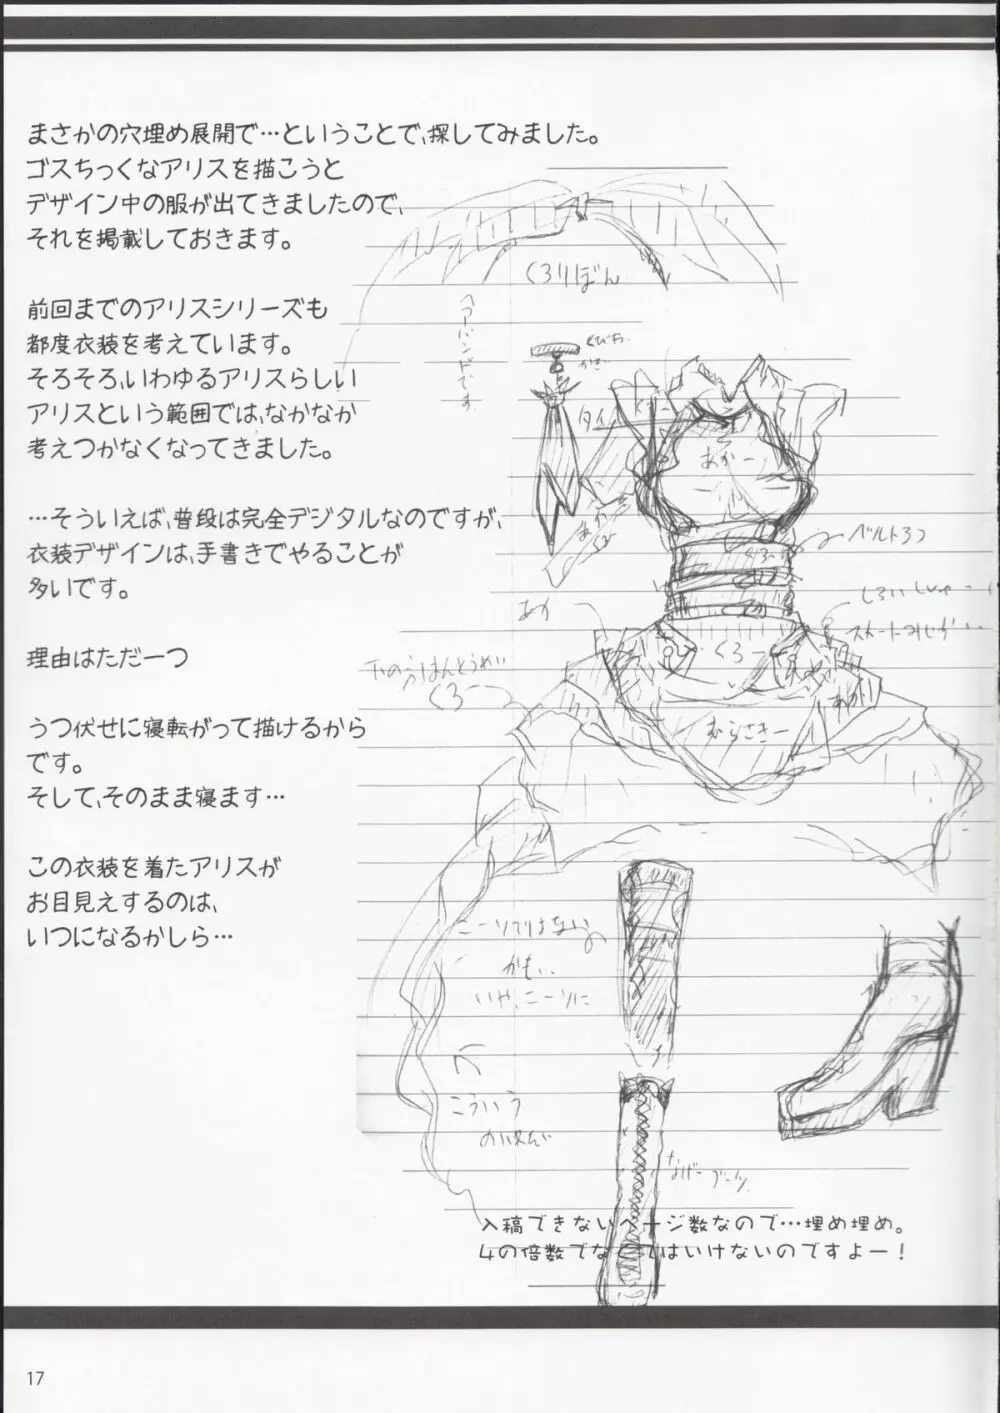 まさかの穴埋め展開で…ということで、探してみました。
ゴスちっくなアリスを描こうと
デザイン中の服が出てきましたので、
それを掲載しておきます。
前回までのアリスシリーズも
都度衣装を考えています。
そろそろ、いわゆるアリスらしい
アリスという範囲では、なかなか
考えつかなくなってきました。
…そういえば、普段は完全デジタルなのですが、
衣装デザインは、手書きでやることが
多いです。
理由はただ一つ
うつ伏せに寝転がって描けるから
です。
そして、そのまま寝ます…
この衣装を着たアリスが
お目見えするのは、
いつになるかしら…
くろりぼん
ヘアーバンドです
タイ
あかー
ベルト3つ
くろー
あか
くろー
むらさきー
ニーソではない
かも..
いや、ニーソに
こういう
なげーブーツ
入稿できないページ数なので…埋め埋め。
4の倍数でなくてはいけないのですよー！
17